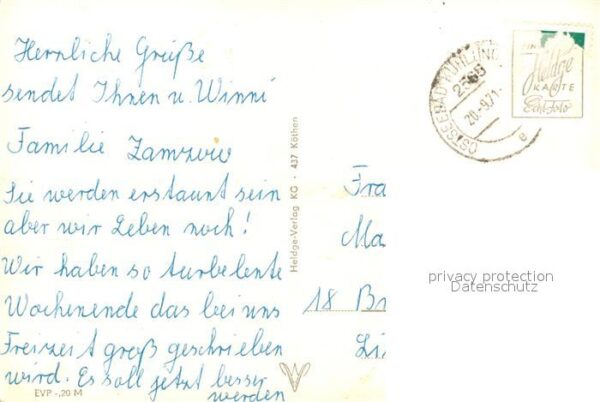 Herzliche Grüße
sendet Ihnen u. Winni
Familie
Sie werden erstaunt sein
aber wir Leben noch!
Wir haben so turbelente
Wochenende das bei uns
Freizeit groß geschrieben
wird. Es soll jetzt besser
werden
EVP -,20 M
Heldge-Verlag KG · 437 Köthen
2565
20.-9.71.-
e
EIN
Heldge
KARTE
Echt-foto
Fra
Ma
18 B
Li
privacy protection
Datenschutz